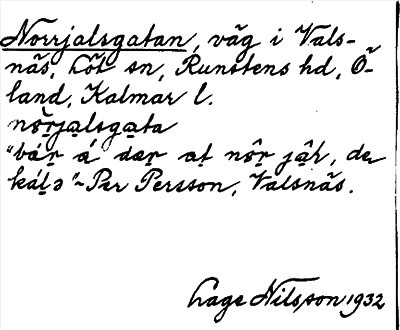 Norrjalsgatan, väg i Vals-
näs, Löt sn, Runstens hd, Ö-
land, Kalmar l.
nö̀r̥ja̱lsga̱ta
"vár̥ á dær̥ at̥ nôr̥ jâh, de
káḷə"~Per Persson, Valsnäs.
Lage Nilsson 1932